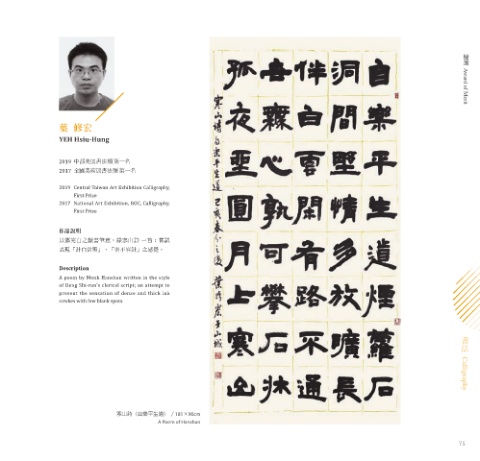 葉 修宏
YEH Hsiu-Hung
2019 中部美展書法類第一名
2017 全國美術展書法類第一名
2019 Central Taiwan Art Exhibition Calligraphy,
First Prize
2017 National Art Exhibition, ROC, Calligraphy,
First Prize
作品說明
以鄧完白之隸書筆意，錄寒山詩一首；嘗試
表現「計白當黑」、「密不容針」之感覺。
Description
A poem by Monk Hanshan written in the style
of Deng Shi-ru's clerical script; an attempt to
present the sensation of dense and thick ink
strokes with few blank spots.
自樂平生道煙蘿石
洞間野情多放曠長
伴白雲閑有路不通
世無心孰可攀石牀
孤夜坐圓月上寒山
寒山詩自樂平生道 己亥春分之後 葉修宏于山城
寒山詩〈自樂平生道〉／181×96cm
A Poem of Hanshan
優選 Award of Merit
書法 Calligraphy
75